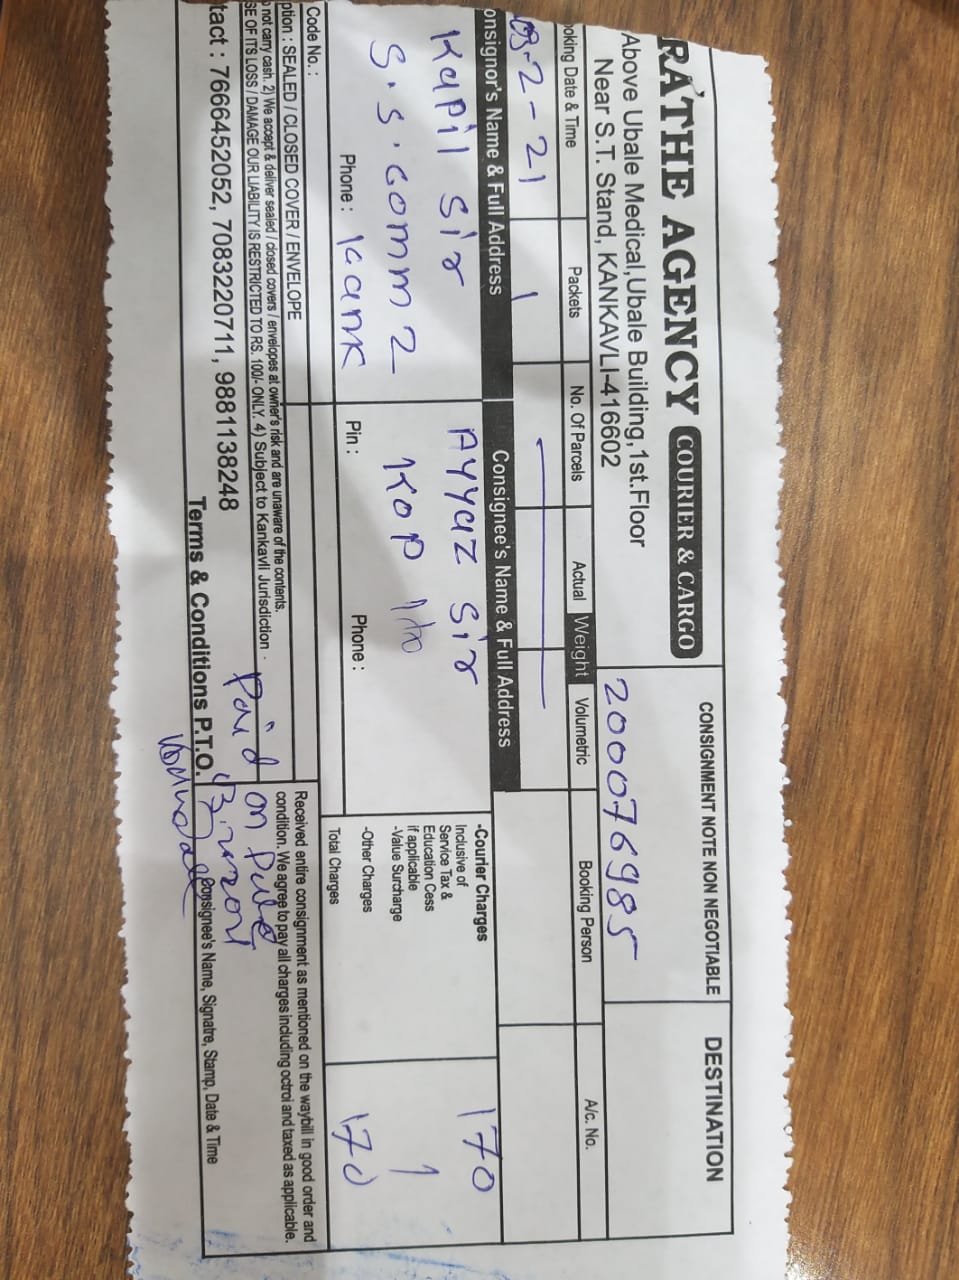 RATHE AGENCY COURIER & CARGO
Above Ubale Medical,Ubale Building,1st.Floor
Near S.T. Stand, KANKAVLI-416602
CONSIGNMENT NOTE NON NEGOTIABLE
200076985
DESTINATION
oking Date & Time
Packets
No. Of Parcels
Actual Weight Volumetric
Booking Person
A/c. No.
03-2-21
1
onsignor's Name & Full Address
Consignee's Name & Full Address
Kapil Sir
S.S. Comm 2
Phone : Kank
Ayyaz Sir
Kop
Pin :
Phone :
-Courier Charges
Inclusive of
Service Tax &
Education Cess
if applicable
-Value Surcharge
-Other Charges
Total Charges
170
1
170
Code No. :
ption : SEALED / CLOSED COVER / ENVELOPE
not carry cash. 2) We accept & deliver sealed / closed covers / envelopes at owner's risk and are unaware of the contents.
SE OF ITS LOSS / DAMAGE OUR LIABILITY IS RESTRICTED TO RS. 100/- ONLY. 4) Subject to Kankavli Jurisdiction
tact : 7666452052, 7083220711, 9881138248
Terms & Conditions P.T.O.
Received entire consignment as mentioned on the waybill in good order and
condition. We agree to pay all charges including octroi and taxed as applicable.
Paid on
Consignee's Name, Signatre, Stamp, Date & Time